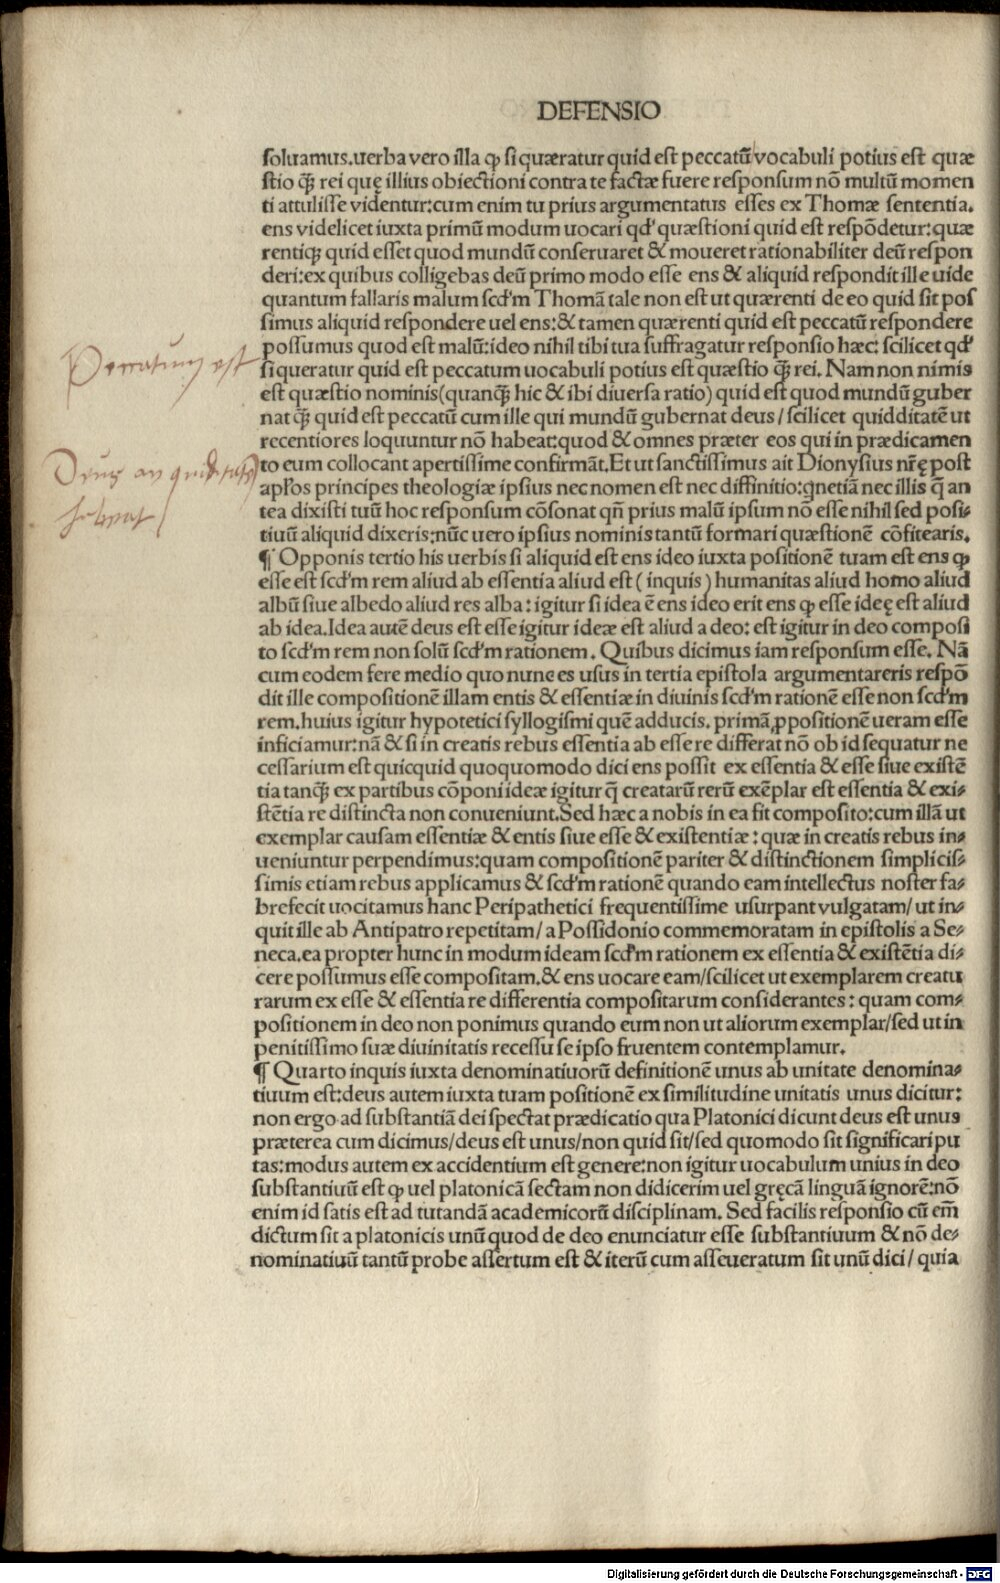 DEFENSIO
soluamus.uerba vero illa ꝙ si quæratur quid est peccatū vocabuli potius est quæ
stio q̄ꝫ rei quę illius obiectioni contra te factæ fuere responsum nō multū momen
ti attulisse videntur:cum enim tu prius argumentatus esses ex Thomæ sententia.
ens videlicet iuxta primū modum uocari qd' quæstioni quid est respōdetur:quæ
rentiqꝫ quid esset quod mundū conseruaret & moueret rationabiliter deū respon
deri:ex quibus colligebas deū primo modo esse ens & aliquid respondit ille uide
quantum fallaris malum scd'm Thomā tale non est ut quærenti de eo quid sit pos
simus aliquid respondere uel ens:& tamen quærenti quid est peccatū respondere
possumus quod est malū:ideo nihil tibi tua suffragatur responsio hæc: scilicet qd'
si queratur quid est peccatum uocabuli potius est quæstio q̄ꝫ rei. Nam non nimis
est quæstio nominis(quanq̄ꝫ hic & ibi diuersa ratio) quid est quod mundū guber
nat q̄ꝫ quid est peccatū cum ille qui mundū gubernat deus/ scilicet quidditatē ut
recentiores loquuntur nō habeat:quod & omnes præter eos qui in prædicamen
to eum collocant apertissime confirmāt.Et ut sanctissimus ait Dionysius nr̄ę post
apl'os principes theologiæ ipsius nec nomen est nec diffinitio:qnetiā nec illis q̄ an
tea dixisti tuū hoc responsum cōsonat qn̄ prius malū ipsum nō esse nihil sed posi-
tiuū aliquid dixeris:nūc uero ipsius nominis tantū formari quæstionē cōfitearis.
¶ Opponis tertio his uerbis si aliquid est ens ideo iuxta positionē tuam est ens ꝙ
esse est scd'm rem aliud ab essentia aliud est ( inquis ) humanitas aliud homo aliud
albū siue albedo aliud res alba: igitur si idea ē ens ideo erit ens ꝙ esse ideę est aliud
ab idea.Idea autē deus est esse igitur ideæ est aliud a deo: est igitur in deo composi
to scd'm rem non solū scd'm rationem. Quibus dicimus iam responsum esse. Nā
cum eodem fere medio quo nunc es usus in tertia epistola argumentareris respō
dit ille compositionē illam entis & essentiæ in diuinis scd'm rationē esse non scd'm
rem.huius igitur hypotetici syllogismi quē adducis. primā ꝓpositionē ueram esse
inficiamur:nā & si in creatis rebus essentia ab esse re differat nō ob id sequatur ne
cessarium est quicquid quoquomodo dici ens possit ex essentia & esse siue existē
tia tanq̄ꝫ ex partibus cōponi ideæ igitur q̄ creatarū rerū exēplar est essentia & exi-
stētia re distincta non conueniunt.Sed hæc a nobis in ea fit composito:cum illā ut
exemplar causam essentiæ & entis siue esse & existentiæ: quæ in creatis rebus in-
ueniuntur perpendimus:quam compositionē pariter & distinctionem simplicis-
simis etiam rebus applicamus & scd'm rationē quando eam intellectus noster fa-
brefecit uocitamus hanc Peripathetici frequentissime usurpant vulgatam/ ut in-
quit ille ab Antipatro repetitam/ a Possidonio commemoratam in epistolis a Se-
neca.ea propter hunc in modum ideam scd'm rationem ex essentia & existētia di-
cere possumus esse compositam.& ens uocare eam/scilicet ut exemplarem creatu
rarum ex esse & essentia re differentia compositarum considerantes: quam com-
positionem in deo non ponimus quando eum non ut aliorum exemplar/sed ut in
penitissimo suæ diuinitatis recessu se ipso fruentem contemplamur.
¶ Quarto inquis iuxta denominatiuorū definitionē unus ab unitate denomina-
tiuum est:deus autem iuxta tuam positionē ex similitudine unitatis unus dicitur:
non ergo ad substantiā dei spectat prædicatio qua Platonici dicunt deus est unus
præterea cum dicimus/deus est unus/non quid sit/sed quomodo sit significari pu
tas:modus autem ex accidentium est genere:non igitur uocabulum unius in deo
substantiuū est ꝙ uel platonicā sectam non didicerim uel gręcā linguā ignorē:nō
enim id satis est ad tutandā academicorū disciplinam. Sed facilis responsio cū em̄
dictum sit a platonicis unū quod de deo enunciatur esse substantiuum & nō de-
nominatiuū tantū probe assertum est & iterū cum asseueratum sit unū dici/ quia
Peccatum est
Deus an quiditatē
habeat
Digitalisierung gefördert durch die Deutsche Forschungsgemeinschaft - DFG